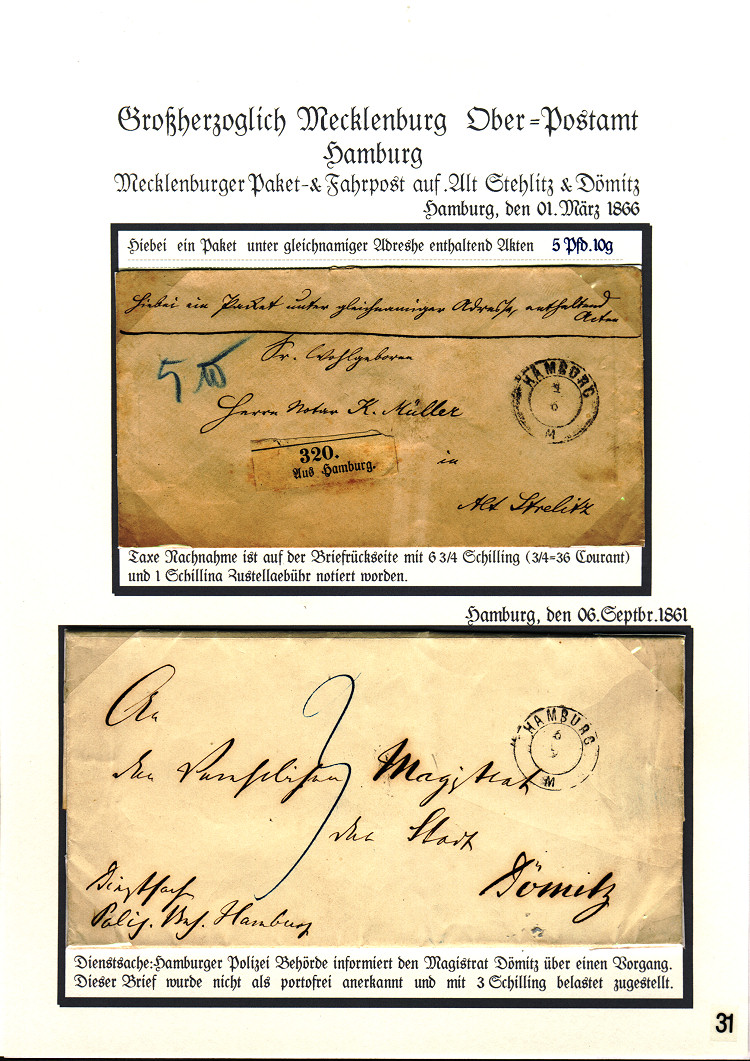 Großherzoglich Mecklenburg Ober=Postamt
Hamburg
Mecklenburger Paket-& Fahrpost auf.Alt Stehlitz & Dömitz
Hamburg, den 01.März 1866
Hiebei ein Paket unter gleichnamiger Adreshe enthaltend Akten 5 Pfd.10g
Hiebei ein Packet unter gleichnamiger Adresse, enthaltend
Acten
Sr. Wohlgeboren
5 10
HAMBURG
M
Herrn Notar K. Müller
320.
Aus Hamburg.
in
Alt Strelitz
Taxe Nachnahme ist auf der Briefrückseite mit 6 3/4 Schilling (3/4=36 Courant)
und 1 Schillina Zustellaebühr notiert worden.
Hamburg, den 06.Septbr.1861
An
3
HAMBURG
6
9
M
den Magistrat
der Stadt
Dömitz
Dienstsache
Poliz. Beh. Hamburg
Dienstsache:Hamburger Polizei Behörde informiert den Magistrat Dömitz über einen Vorgang.
Dieser Brief wurde nicht als portofrei anerkannt und mit 3 Schilling belastet zugestellt.
31